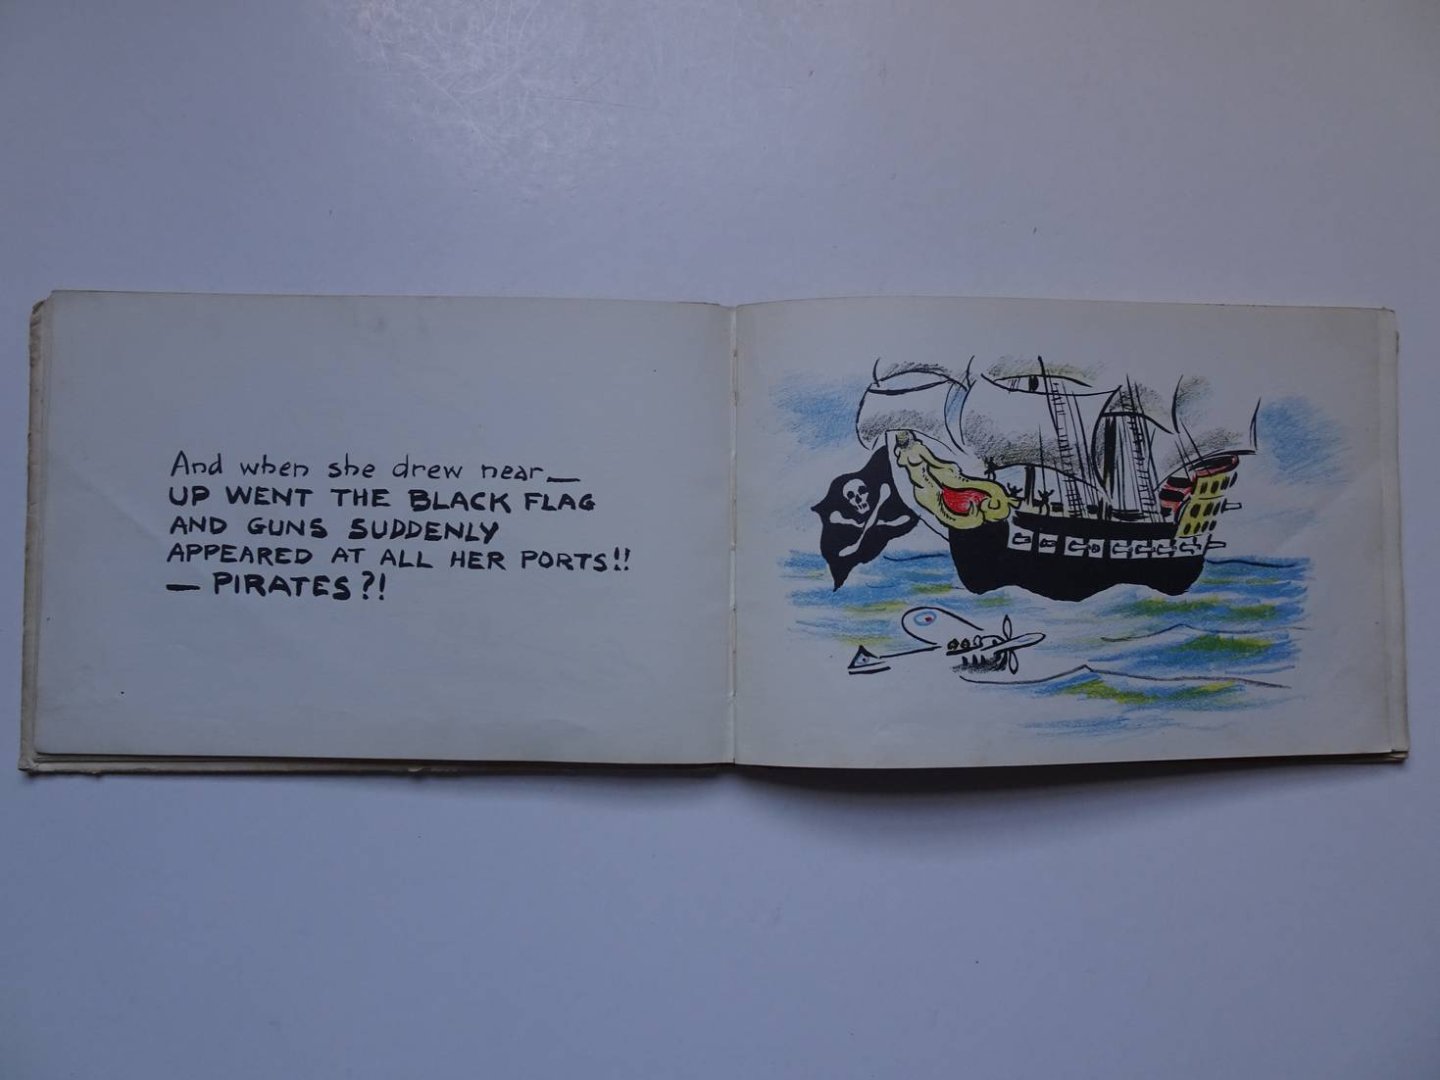 And when she drew near —
UP WENT THE BLACK FLAG
AND GUNS SUDDENLY
APPEARED AT ALL HER PORTS!!
— PIRATES?!